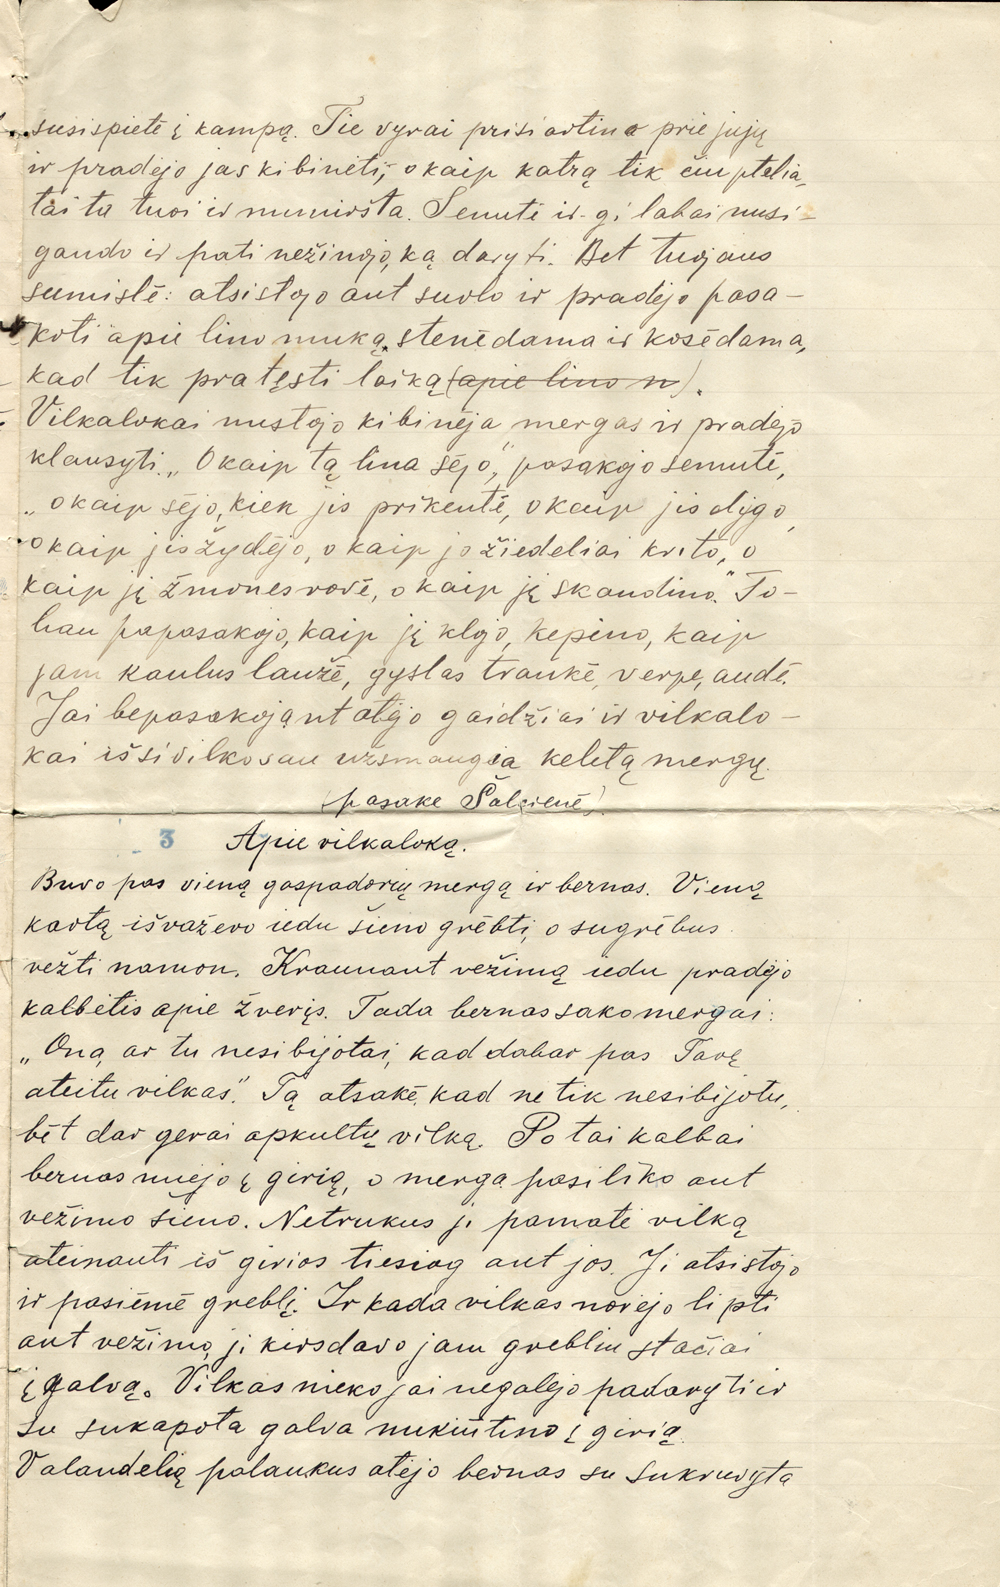 susispietė į kampą. Tie vyrai prisiartina prie jųjų
ir pradėjo jas kibinėti, o kaip katrą tik čiuptelia,
tai ta tuoj ir numiršta. Senutė ir-gi labai nusi-
gando ir pati nežinojo, ką daryti. Bet tuojaus
sumislė: atsistojo ant suolo ir pradėjo pasa-
koti apie lino muką, stenėdama ir kosėdama,
kad tik pratęsti laiką (apie lino m).
Vilkalokai nustojo kibinėja mergas ir pradėjo
klausyti. „O kaip tą lina sėjo," pasakojo senutė,
„o kaip sėjo, kiek jis prikentė, o kaip jis dygo,
o kaip jis žydėjo, o kaip jo žiedeliai krito, o
kaip jį žmonės rovė, o kaip jį skandino." To-
liau papasakojo, kaip jį klojo, kepino, kaip
jam kaulus laužė, gyslas traukė, verpe, audė.
Jai bepasakojant atėjo gaidžiai ir vilkalo-
kai išsivilko sau užsmaugia keletą mergų.
(pasake Šalcienė).
3 Apie vilkaloką.
Buvo pas vieną gaspadorių mergą ir bernas. Vieną
kartą išvaževo iedu šieno grėbti, o sugrėbus
vežti namon. Kraunant vežimą iedu pradėjo
kalbėtis apie žverįs. Tada bernas sako mergai:
„Ona, ar tu nesibijotai, kad dabar pas Tavę
ateitu vilkas". Tą atsakė, kad ne tik nesibijotu,
bet dar gerai apkultų vilką. Po tai kalbai
bernas nuėjo į girią, o merga pasiliko ant
vežimo šieno. Netrukus ji pamatė vilką
ateinanti iš girios tiesiog ant jos. Ji atsistojo
ir pasiėmė greblį. Ir kada vilkas norėjo lipti
ant vežimo, ji kirsdavo jam grebliu stačiai
į galvą. Vilkas nieko jai negalėjo padaryti ir
su sukapota galva nukiūtino į girią.
Valandelią palaukus atėjo bernas su sukruvyta